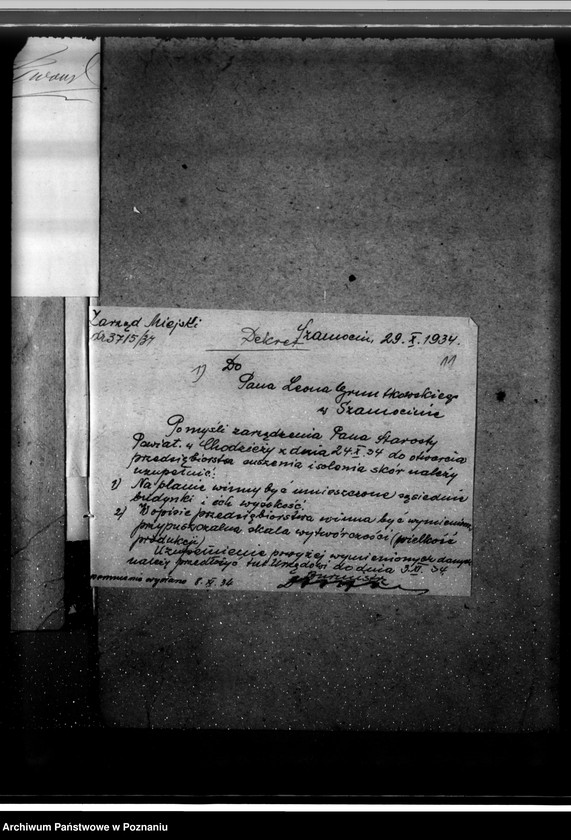 Zarząd Miejski
Nr 3715/34
Szamocin, 29. X. 1934.
Dekret
11
1) Do
Pana Leona Grun
w Szamocinie
Po myśli zarządzenia Pana Starosty
Powiat. w Chodzieży z dnia 24 X 34 do otwarcia
przedsiębiorstwa suszenia i solenia skór należy
uzupełnić:
1) Na planie winny być umieszczone sąsiednie
budynki i ich wysokość.
2) W opisie przedsiębiorstwa winna być wymieniona
przypuszczalna skala wytwórczości (wielkość
produkcji)
Uzupełnienie powyżej wymienionych danych
należy przedłożyć tut. Urzędowi do dnia 3 XI 34
Burmistrz
wysłano 8. XI. 34
Archiwum Państwowe w Poznaniu